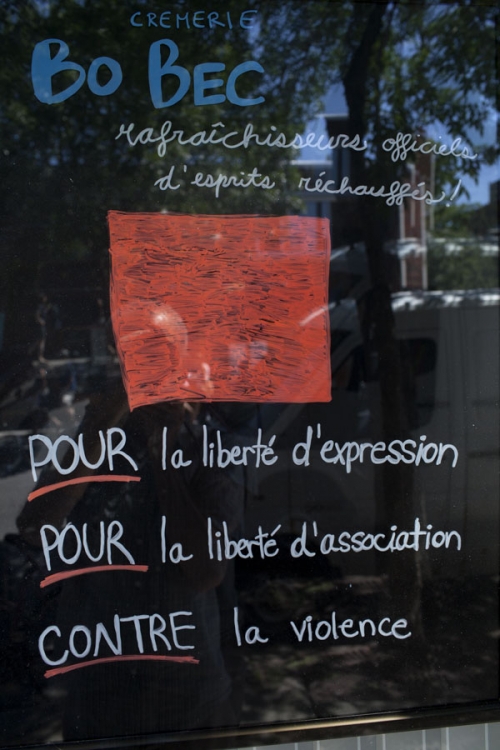 CRÈMERIE
BO BEC
rafraîchisseurs officiels
d'esprits réchauffés!
POUR la liberté d'expression
POUR la liberté d'association
CONTRE la violence